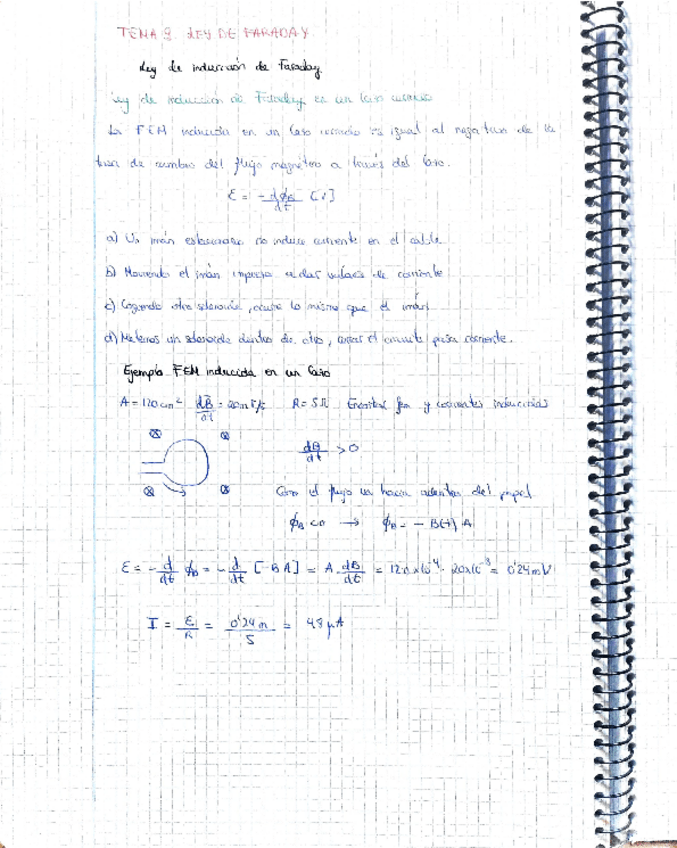 TEMA 9 LEY DE FARADAY
Ley de inducción de Faraday
Ley de inducción de Faraday en un lazo cerrado
La FEM inducida en un lazo cerrado es igual al negativo de la
tasa de cambio del flujo magnético a través del lazo.
ε = -dϕB/dt [V]
a) Un imán estacionario no induce corriente en el cable
b) Moviendo el imán empieza a dar valores de corriente
c) Cogiendo otro solenoide, ocurre lo mismo que el imán
d) Metemos un solenoide dentro de otro, el circuito pasa corriente.
Ejemplo FEM inducida en un lazo
A = 120 cm² dB/dt = 20mT/s R = 5Ω Encontrar fem y corrientes inducidas
dB/dt > 0
Como el flujo va hacia adentro del papel
ϕB < 0 → ϕB = - B(t) A
ε = - d/dt ϕB = - d/dt [-BA] = A · dB/dt = 120 x 10⁻⁴ · 20x10⁻³ = 0'24 mV
I = ε/R = 0'24m/5 = 48 μA